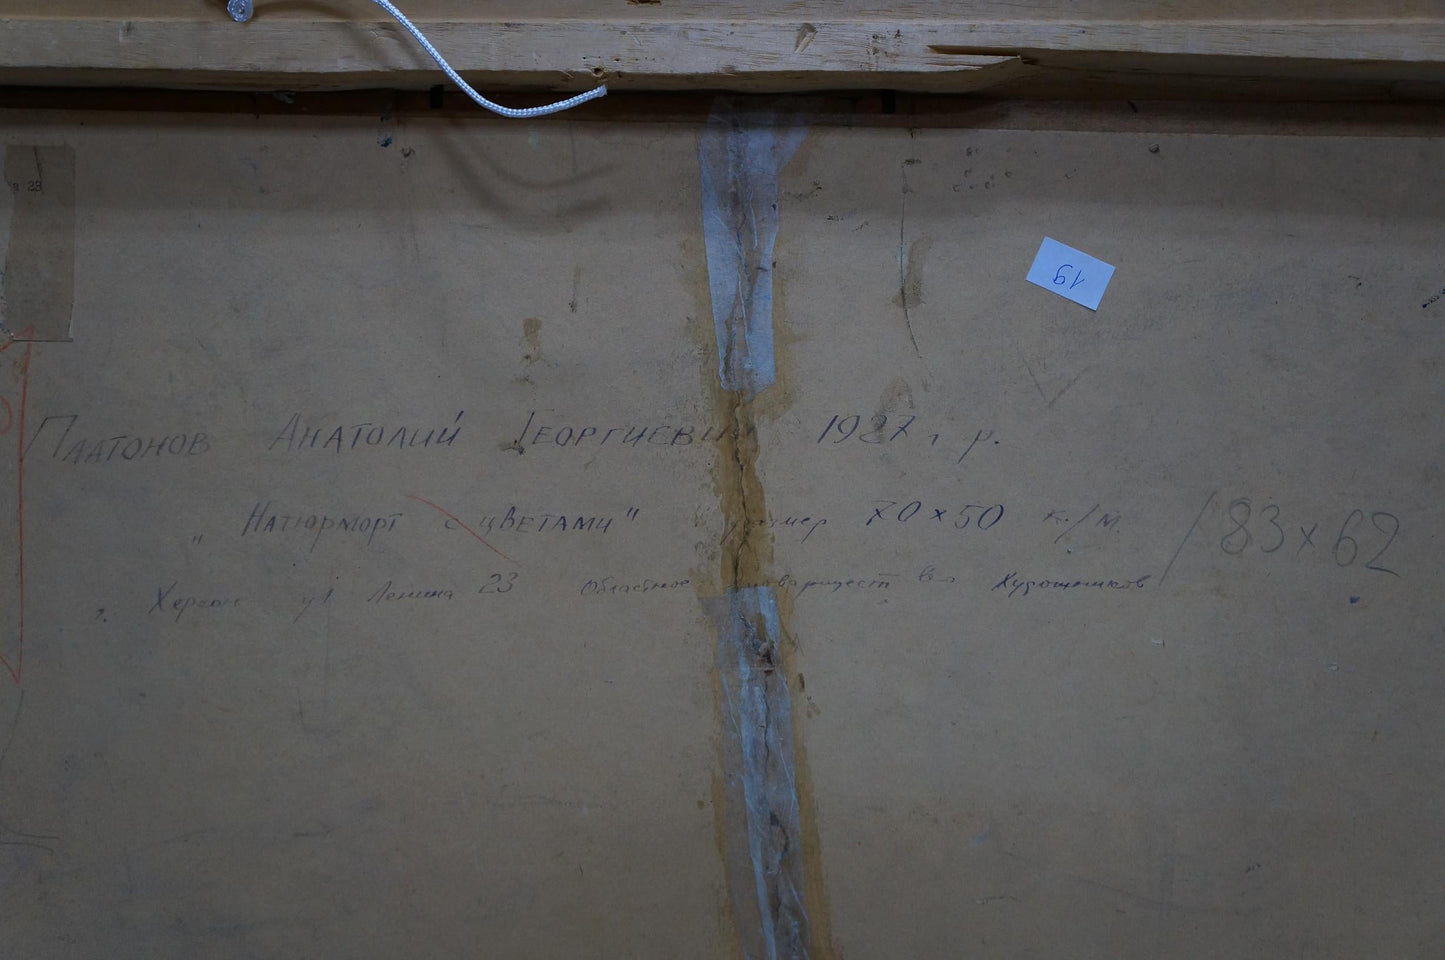 а 23
19
Платонов Анатолий Георгиевич 1927 г р.
„Натюрморт с цветами" размер 70×50 к./м. /83×62
г. Херсон ул Ленина 23 Областное товарищество Художников